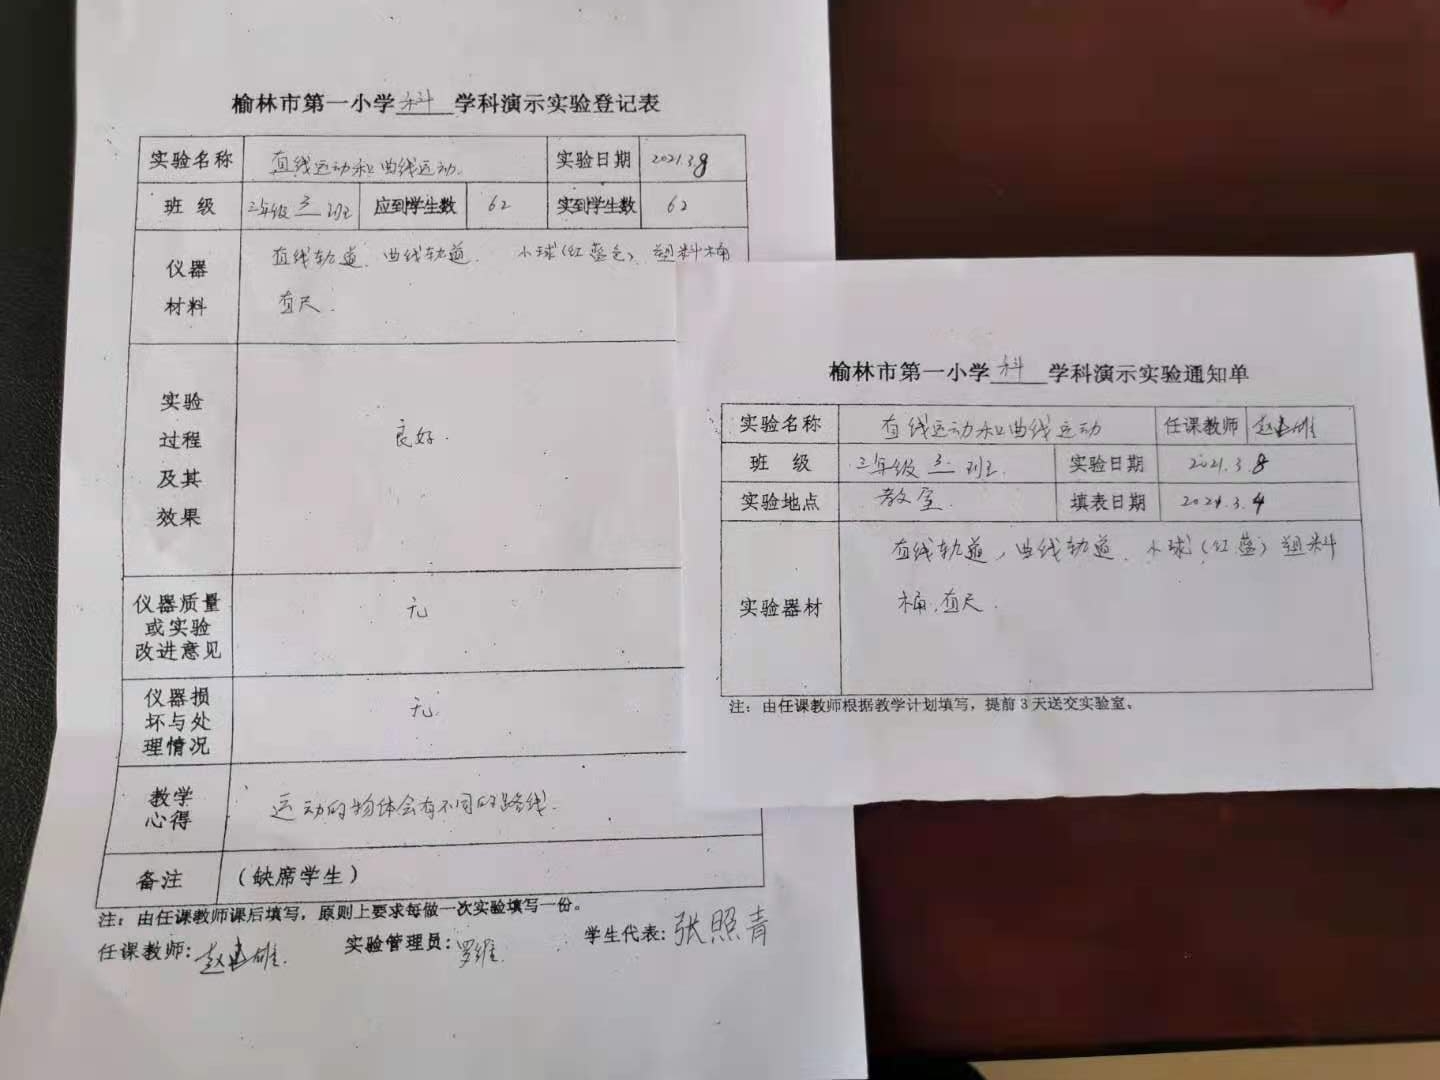 榆林市第一小学科学科演示实验登记表
实验名称 直线运动和曲线运动. 实验日期 2021.3.8
班 级 三年级 三 班 应到学生数 62 实到学生数 62
仪器 材料 直线轨道、曲线轨道. 小球(红蓝色)、塑料桶
直尺.
实验
过程
及其
效果
良好.
仪器质量
或实验
改进意见
无
仪器损
坏与处
理情况
无.
教学
心得
运动的物体会有不同的路线.
备注 (缺席学生)
注：由任课教师课后填写，原则上要求每做一次实验填写一份。
任课教师: 赵雄. 实验管理员: 罗维. 学生代表: 张照青
榆林市第一小学科学科演示实验通知单
实验名称 直线运动和曲线运动 任课教师 赵雄
班 级 三年级 三 班. 实验日期 2021.3.8
实验地点 教室. 填表日期 2021.3.4
实验器材 直线轨道，曲线轨道、小球(红蓝)塑料
桶，直尺.
注：由任课教师根据教学计划填写，提前 3 天送交实验室、